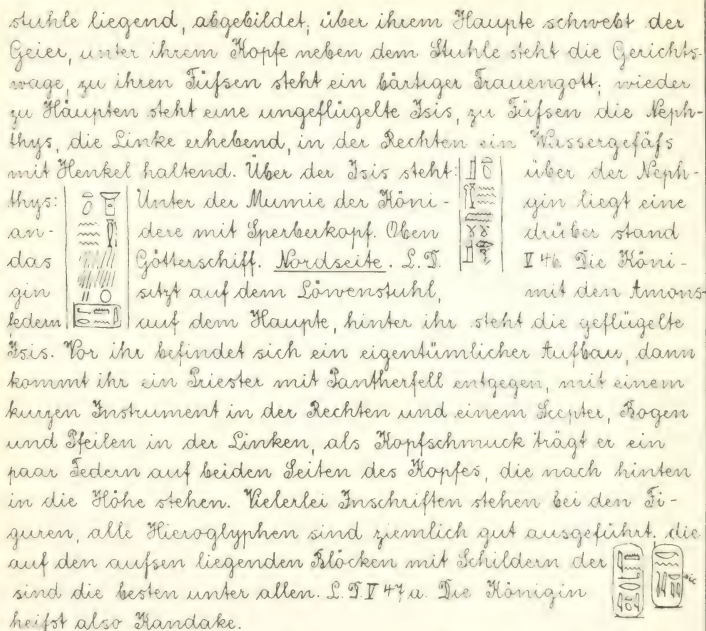 stuhle liegend, abgebildet; über ihrem Haupte schwebt der
Geier, unter ihrem Kopfe neben dem Stuhle steht die Gerichts-
wage, zu ihren Füfsen steht ein bärtiger Frauengott; wieder
zu Häupten steht eine ungeflügelte Isis, zu Füfsen die Neph-
thys, die Linke erhebend, in der Rechten ein Wassergefäfs
mit Henkel haltend. Über der Isis steht: über der Neph-
thys: Unter der Mumie der Köni- gin liegt eine
an- dere mit Sperberkopf. Oben drüber stand
das Götterschiff. Nordseite. L. D. V 46. Die Köni-
gin sitzt auf dem Löwenstuhl, mit den Amons-
federn auf dem Haupte, hinter ihr steht die geflügelte
Isis. Vor ihr befindet sich ein eigentümlicher Aufbau, dann
kommt ihr ein Priester mit Pantherfell entgegen, mit einem
kurzen Instrument in der Rechten und einem Scepter, Bogen
und Pfeilen in der Linken, als Kopfschmuck trägt er ein
paar Federn auf beiden Seiten des Kopfes, die nach hinten
in die Höhe stehen. Vielerlei Inschriften stehen bei den Fi-
guren, alle Hieroglyphen sind ziemlich gut ausgeführt. die
auf den aufsen liegenden Blöcken mit Schildern der
sind die besten unter allen. L. D. V 47 a. Die Königin sic
heifst also Kandake.